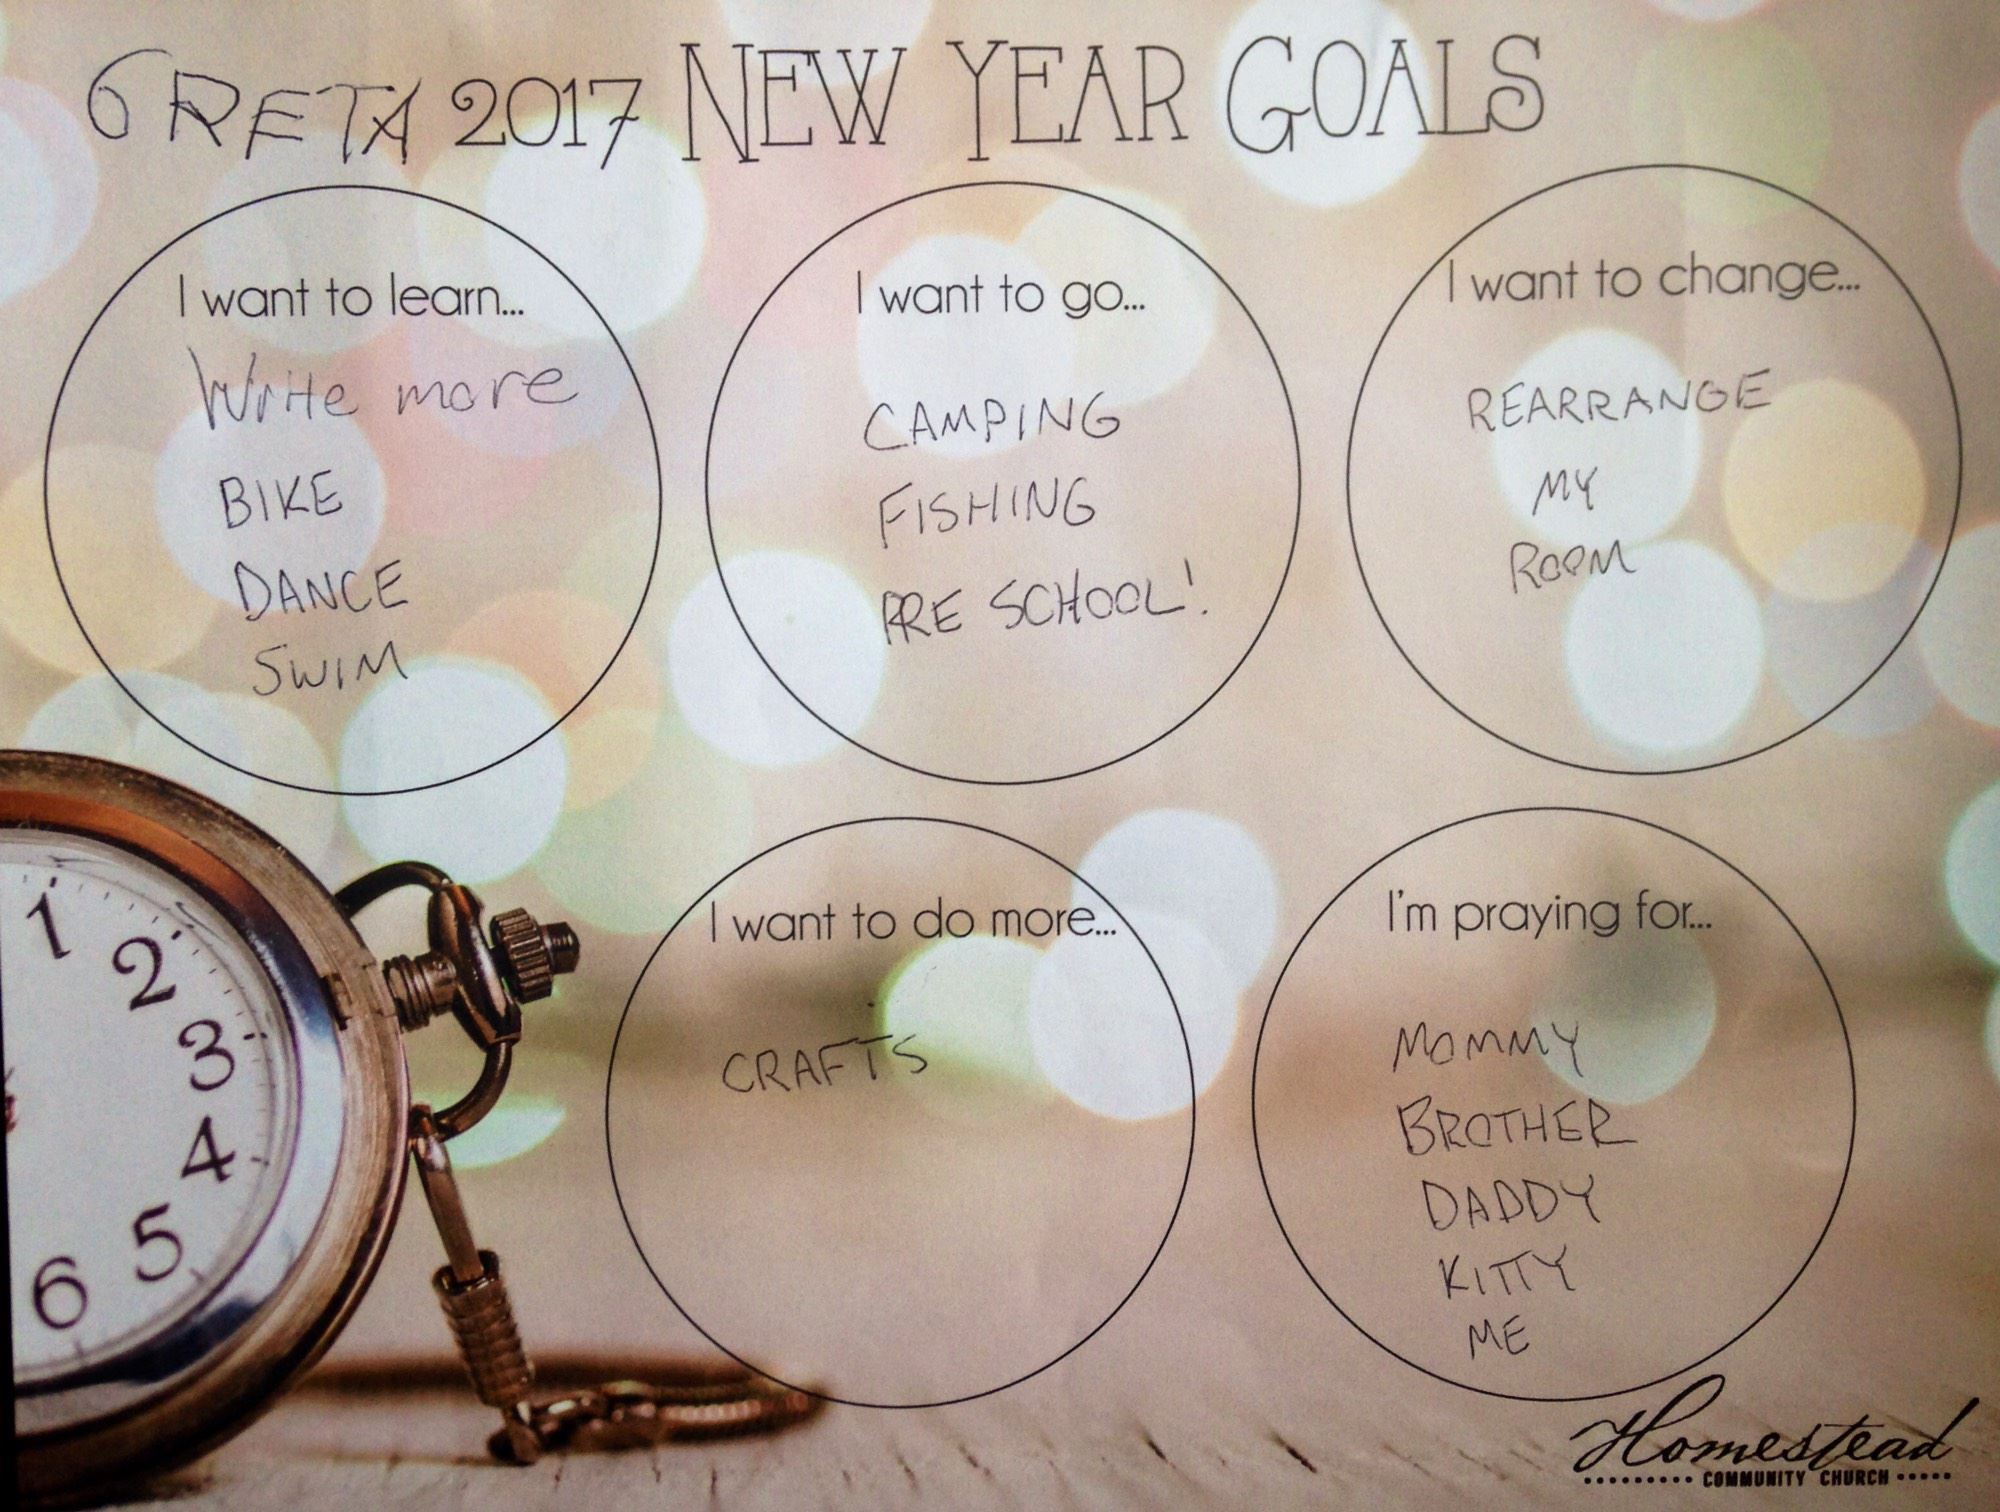 GRETA 2017 NEW YEAR GOALS
I want to learn...
Write more
BIKE
DANCE
SWIM
I want to go...
CAMPING
FISHING
PRE SCHOOL!
I want to change...
REARRANGE
MY
ROOM
I want to do more...
CRAFTS
I'm praying for...
MOMMY
BROTHER
DADDY
KITTY
ME
1
2
3
4
5
6
Homestead
COMMUNITY CHURCH